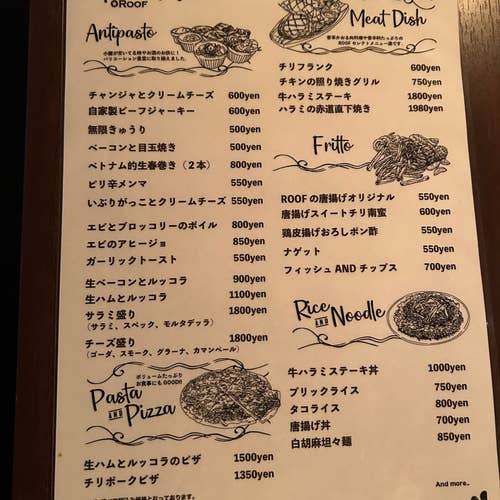 ROOF
Antipasto
小腹が空いてる時やお酒のお供に！
バリエーション豊富に取り揃えました。
チャンジャとクリームチーズ 600yen
自家製ビーフジャーキー 600yen
無限きゅうり 500yen
ベーコンと目玉焼き 500yen
ベトナム的生春巻き（2本） 800yen
ピリ辛メンマ 550yen
いぶりがっことクリームチーズ 550yen
エビとブロッコリーのボイル 800yen
エビのアヒージョ 850yen
ガーリックトースト 550yen
生ベーコンとルッコラ 900yen
生ハムとルッコラ 1100yen
サラミ盛り 1800yen
（サラミ、スペック、モルタデッラ）
チーズ盛り 1800yen
（ゴーダ、スモーク、グラーナ、カマンベール）
ボリュームたっぷり
お食事にもGOOD!!
Pasta
AND
Pizza
生ハムとルッコラのピザ 1500yen
チリポークピザ 1350yen
となっております。
Meat Dish
ROOF セレクトメニュー達です。
チリフランク 600yen
チキンの照り焼きグリル 750yen
牛ハラミステーキ 1800yen
ハラミの赤道直下焼き 1980yen
Fritto
ROOFの唐揚げオリジナル 550yen
唐揚げスイートチリ南蛮 600yen
鶏皮揚げおろしポン酢 550yen
ナゲット 550yen
フィッシュANDチップス 700yen
Rice
AND
Noodle
牛ハラミステーキ丼 1000yen
ブリックライス 750yen
タコライス 800yen
唐揚げ丼 700yen
白胡麻坦々麺 850yen
And more..